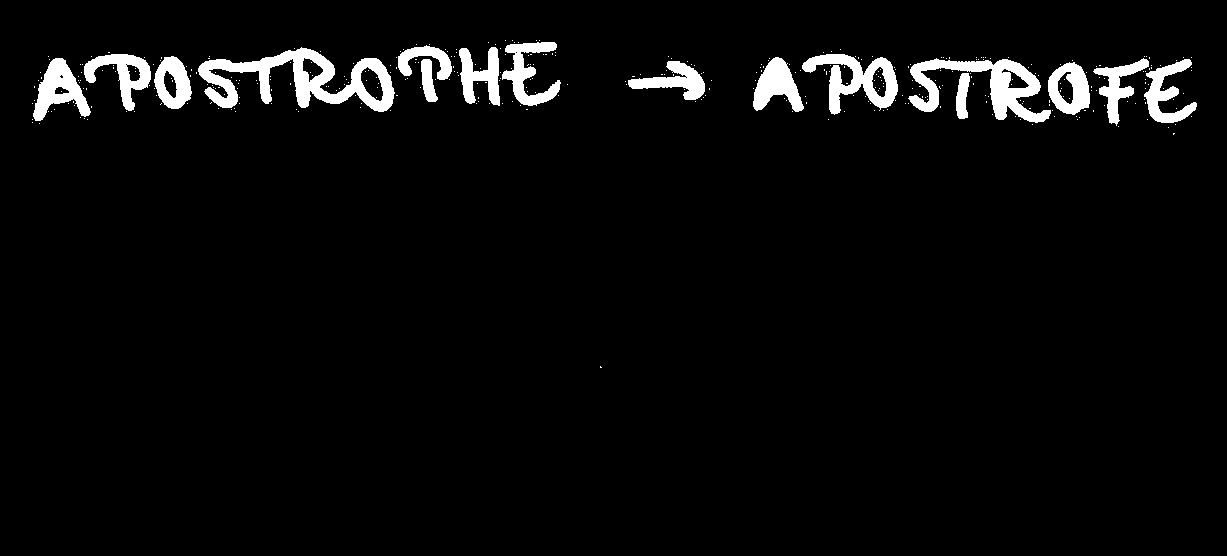 APOSTROPHE → APOSTROFE